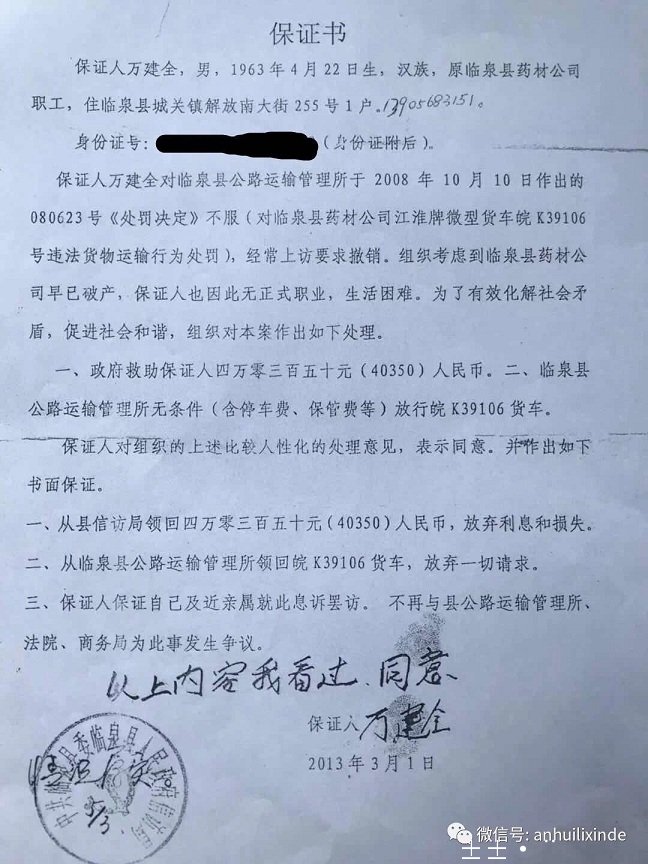 保证书
保证人万建全，男，1963年4月22日生，汉族，原临泉县药材公司
职工，住临泉县城关镇解放南大街255号1户。13905683151。
身份证号：（身份证附后）。
保证人万建全对临泉县公路运输管理所于 2008 年 10 月 10 日作出的
080623号《处罚决定》不服（对临泉县药材公司江淮牌微型货车皖K39106
号违法货物运输行为处罚），经常上访要求撤销。组织考虑到临泉县药材公
司早已破产，保证人也因此无正式职业，生活困难。为了有效化解社会矛
盾，促进社会和谐，组织对本案作出如下处理。
一、政府救助保证人四万零三百五十元（40350）人民币。二、临泉县
公路运输管理所无条件（含停车费、保管费等）放行皖K39106货车。
保证人对组织的上述比较人性化的处理意见，表示同意。并作出如下
书面保证。
一、从县信访局领回四万零三百五十元（40350）人民币，放弃利息和损失。
二、从临泉县公路运输管理所领回皖K39106货车，放弃一切请求。
三、保证人保证自己及近亲属就此息诉罢访。 不再与县公路运输管理所、
法院、商务局为此事发生争议。
以上内容我看过、同意
保证人 万建全
2013年3月1日
中共临泉县委临泉县人民政府信访局
情况属实
微信号: anhuilixinde